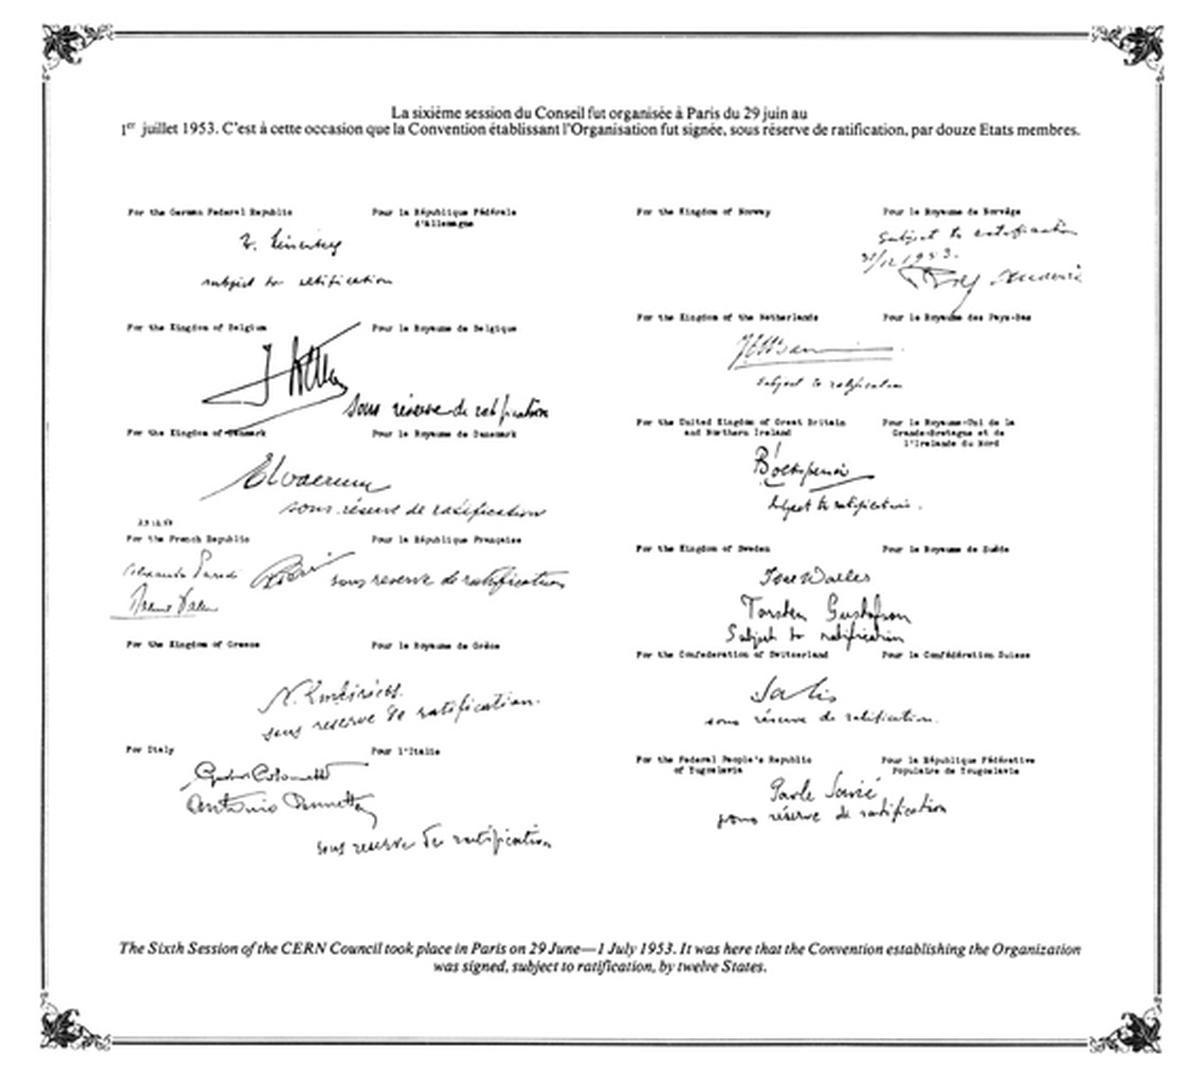 La sixième session du Conseil fut organisée à Paris du 29 juin au
1er juillet 1953. C'est à cette occasion que la Convention établissant l'Organisation fut signée, sous réserve de ratification, par douze Etats membres.
For the German Federal Republic
Pour la République Fédérale
d'Allemagne
subject to ratification
For the Kingdom of Belgium
Pour le Royaume de Belgique
sous réserve de ratification
For the Kingdom of Denmark
Pour le Royaume de Danemark
sous réserve de ratification
For the French Republic
Pour la République Française
sous reserve de ratification
For the Kingdom of Greece
Pour le Royaume de Grèce
sous reserve de ratification.
For Italy
Pour l'Italie
Antonio Pennetta
sous reserve de ratification
For the Kingdom of Norway
Pour le Royaume de Norvège
Subject to ratification
31/12 1953.
For the Kingdom of the Netherlands
Pour le Royaume des Pays-Bas
subject to ratification
For the United Kingdom of Great Britain
and Northern Ireland
Pour le Royaume-Uni de la
Grande-Bretagne et de
l'Irelande du Nord
subject to ratification.
For the Kingdom of Sweden
Pour le Royaume de Suède
Torsten Gustafson
Subject to ratification
For the Confederation of Switzerland
Pour la Confédération Suisse
Salis
sous réserve de ratification.
For the Federal People's Republic
of Yugoslavia
Pour la République Fédérative
Populaire de Yougoslavie
Pavle Savić
sous réserve de ratification
The Sixth Session of the CERN Council took place in Paris on 29 June—1 July 1953. It was here that the Convention establishing the Organization
was signed, subject to ratification, by twelve States.